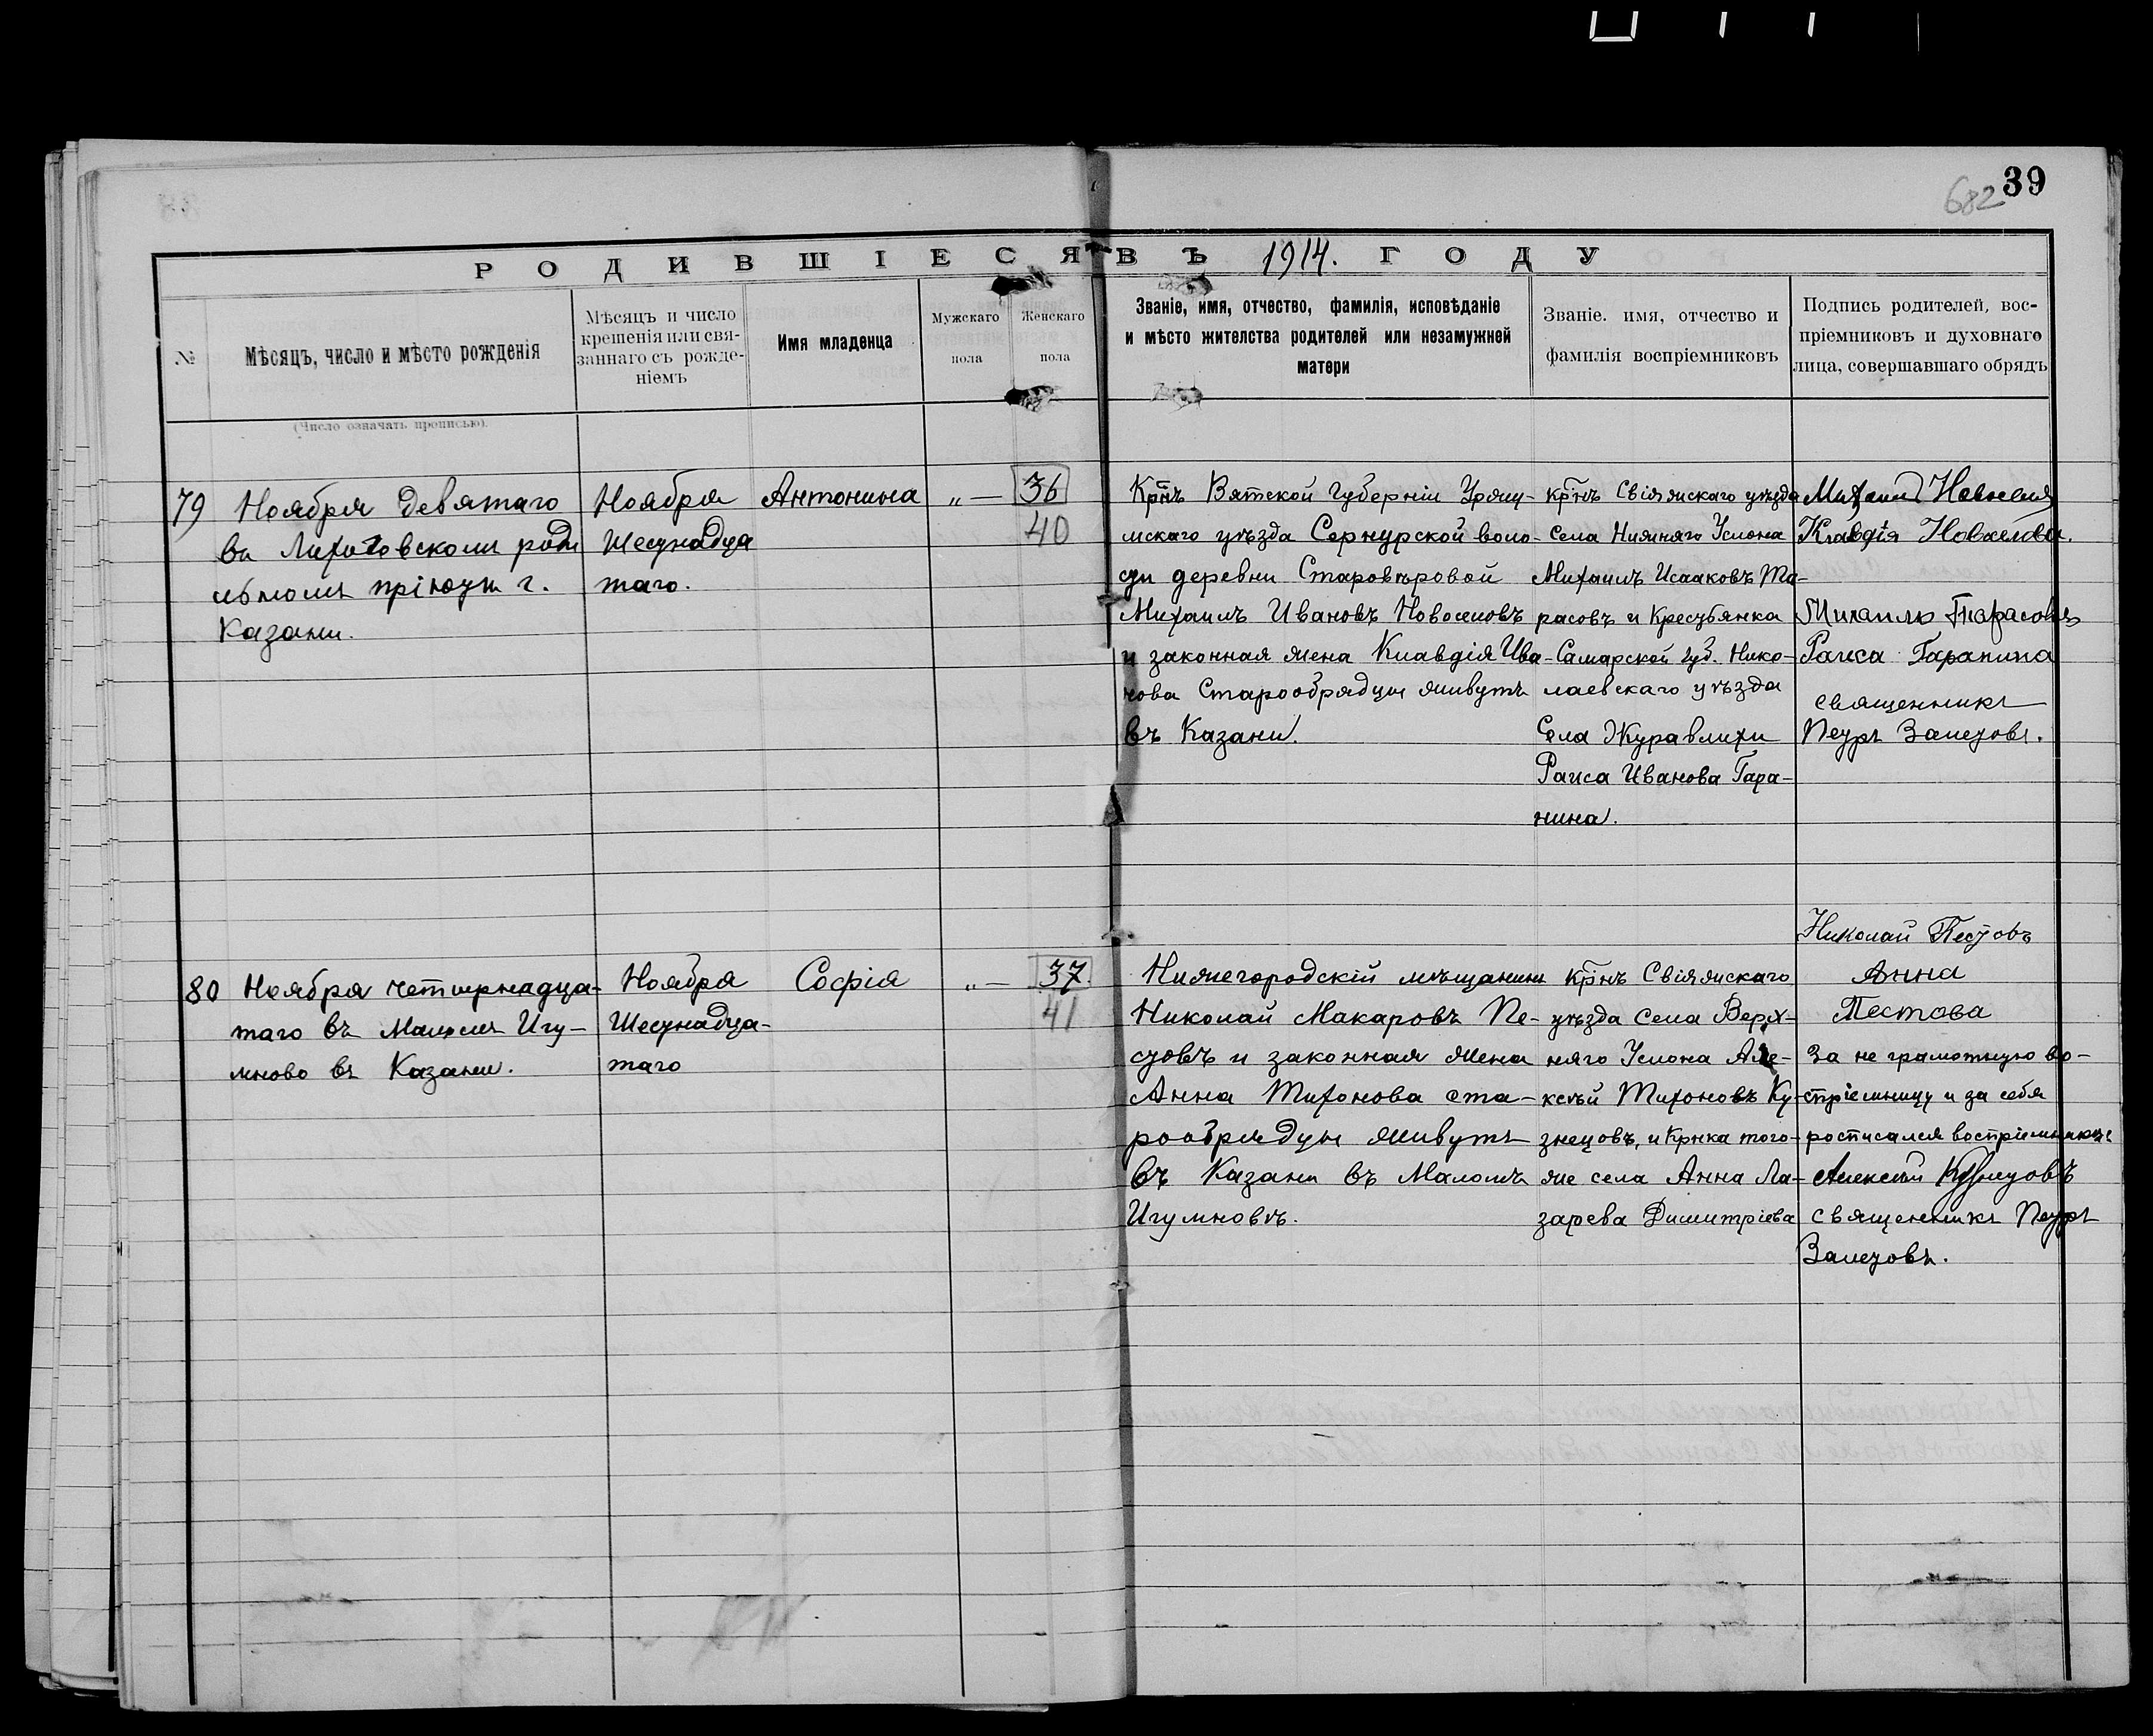 682 39
РОДИВШІЕСЯ ВЪ 1914. ГОДУ
№
Мѣсяцъ, число и мѣсто рожденія
(Число означать прописью).
Мѣсяцъ и число
крещенія или свя-
заннаго съ рожде-
ніемъ
Имя младенца
Мужскаго
пола
Женскаго
пола
Званіе, имя, отчество, фамилія, исповѣданіе
и мѣсто жителства родителей или незамужней
матери
Званіе. имя, отчество и
фамилія воспріемниковъ
Подпись родителей, вос-
пріемниковъ и духовнаго
лица, совершавшаго обрядъ
79
Ноября девятаго
въ Лихачовскомъ роди
льномъ пріютѣ г.
Казани.
Ноября
Шестнадца
таго.
Антонина
„ —
36
40
Крнъ Вятской Губерніи Уржу-
мскаго уѣзда Сернурской воло-
сти деревни Старовѣровой
Михаилъ Ивановъ Новоселовъ
и законная жена Клавдія Ива-
нова Старообрядцы живутъ
въ Казани.
крнъ Свіяжскаго уѣзда
Села Нижняго Услона
Михаилъ Исааковъ Та-
расовъ и Крестьянка
Самарской губ. Нико-
лаевскаго уѣзда
Села Журавлихи
Раиса Иванова Гара-
нина.
Михаилъ Новоселовъ
Клавдія Новоселова.
Михаилъ Тарасовъ
Раиса Гаранина
священникъ
Петръ Залетовъ.
80
Ноября четырнадца-
таго въ Маломъ Игу-
мново въ Казани.
Ноября
Шестнадца-
таго
Софія
„ —
37
41
Нижегородскій мѣщанинъ
Николай Макаровъ Пе-
стовъ и законная жена
Анна Тихонова ста-
рообрядцы живутъ
въ Казани въ Маломъ
Игумновѣ.
крнъ Свіяжскаго
уѣзда села Верх-
няго Услона Але-
ксѣй Тихоновъ Ку-
знецовъ, и Крнка того-
же села Анна Ла-
зарева Димитріева
Николай Пестовъ
Анна
Пестова
За не грамотную во-
спріемницу и за себя
росписался воспріемникъ:
Алексѣй Кузнецовъ
священникъ Петръ
Залетовъ.